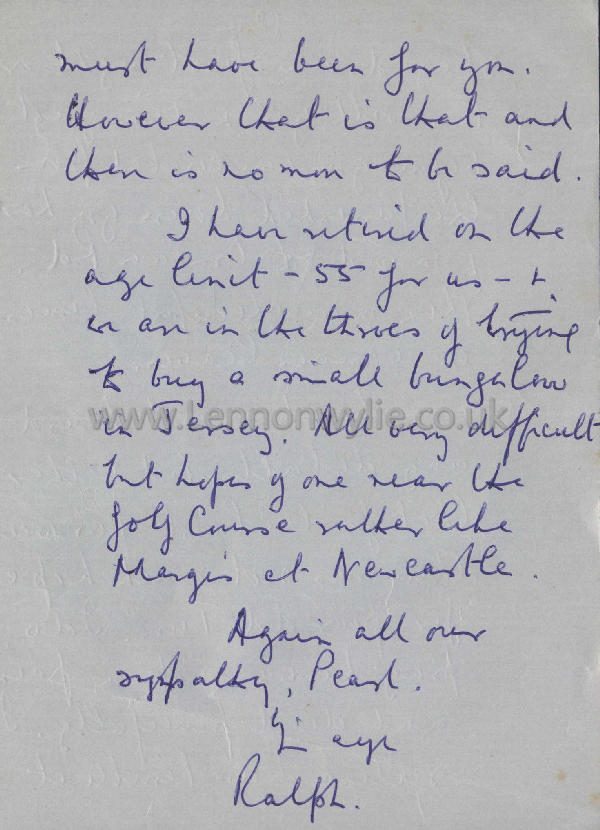 must have been for you.
However that is that and
there is no more to be said.
I have retired on the
age limit - 55 for us - +
we are in the throes of trying
to buy a small bungalow
www.Lennonwylie.co.uk
in Jersey. All very difficult
but hopes of one near the
Golf Course rather like
Margie's at Newcastle.
Again all our
sympathy, Pearl.
Yrs aye
Ralph.